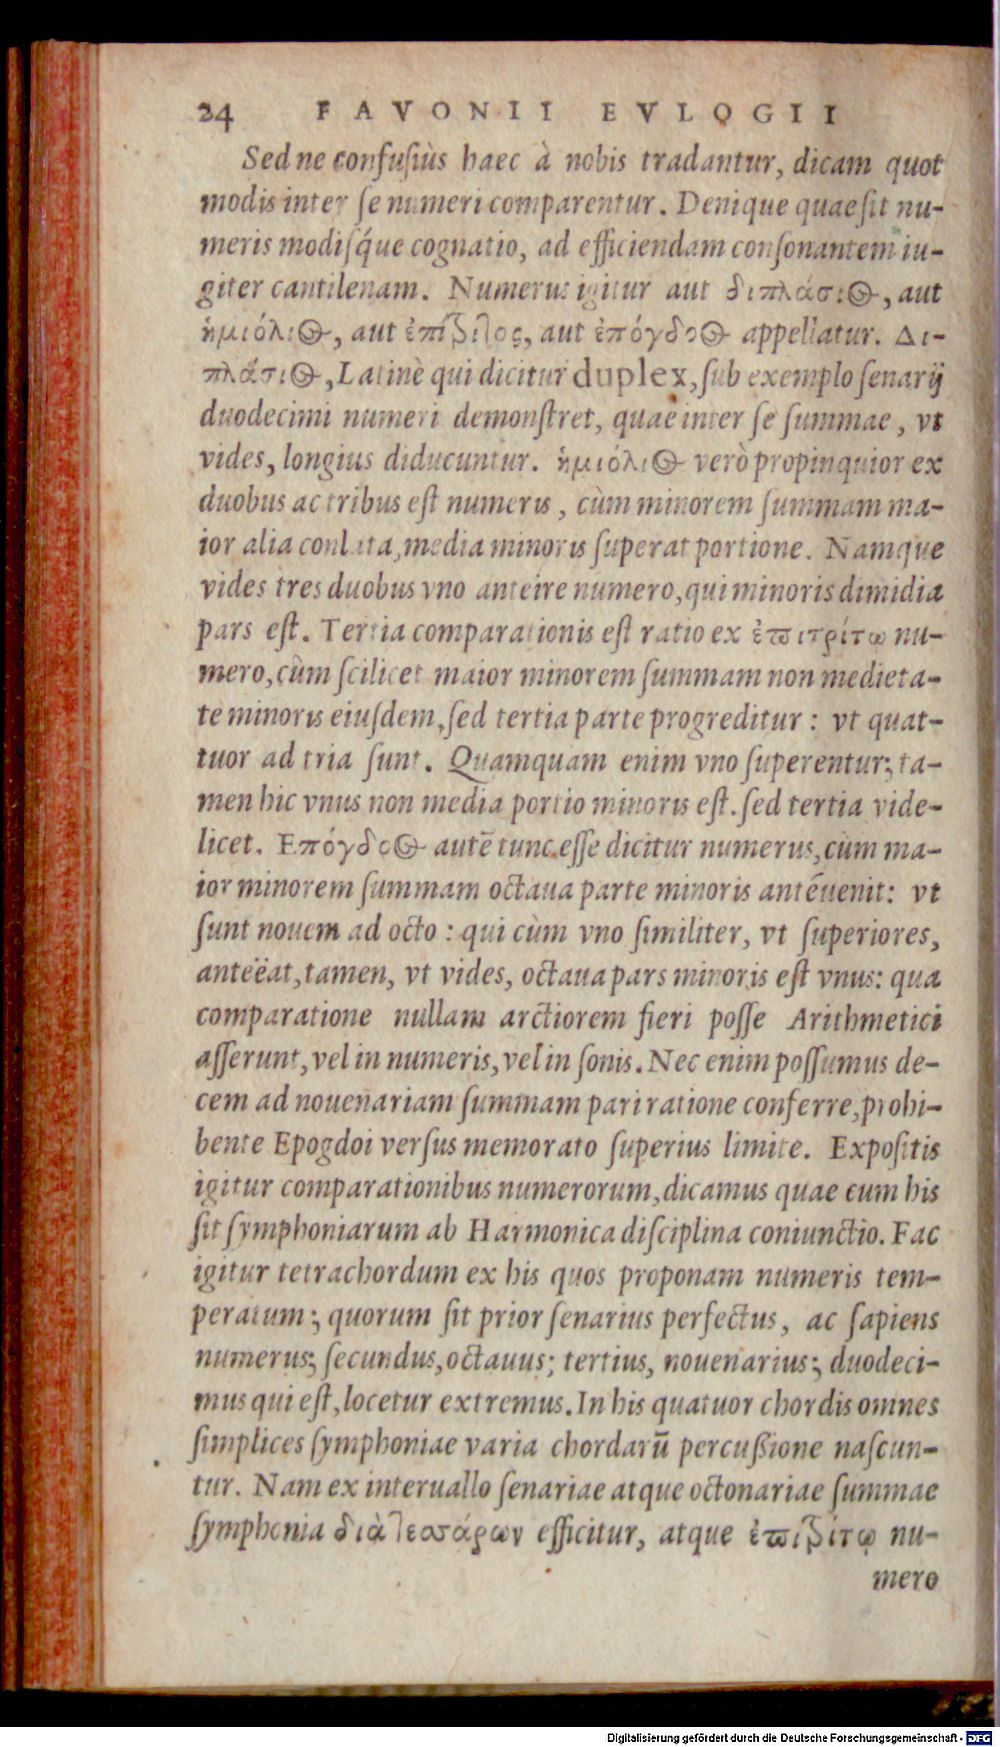 24 FAVONII EVLOGII
Sed ne confuſiùs haec à nobis tradantur, dicam quot
modis inter ſe numeri comparentur. Denique quae ſit nu-
meris modiſq́ue cognatio, ad efficiendam conſonantem iu-
giter cantilenam. Numerus igitur aut διπλάσιος, aut
ἡμιόλιος, aut ἐπίτριτος, aut ἐπόγδοος appellatur. Δι-
πλάσιος, Latinè qui dicitur duplex, ſub exemplo ſenarij
duodecimi numeri demonſtret, quae inter ſe ſummae, vt
vides, longius diducuntur. ἡμιόλιος verò propinquior ex
duobus ac tribus eſt numeris, cùm minorem ſummam ma-
ior alia conlata, media minoris ſuperat portione. Namque
vides tres duobus vno anteire numero, qui minoris dimidia
pars eſt. Tertia comparationis eſt ratio ex ἐπιτρίτω nu-
mero, cùm ſcilicet maior minorem ſummam non medieta-
te minoris eiuſdem, ſed tertia parte progreditur: vt quat-
tuor ad tria ſunt. Quamquam enim vno ſuperentur; ta-
men hic vnus non media portio minoris eſt. ſed tertia vide-
licet. Επόγδοος autē tunc eſſe dicitur numerus, cùm ma-
ior minorem ſummam octaua parte minoris antēuenit: vt
ſunt nouem ad octo: qui cùm vno ſimiliter, vt ſuperiores,
anteëat, tamen, vt vides, octaua pars minoris eſt vnus: qua
comparatione nullam arctiorem fieri poſſe Arithmetici
aſſerunt, vel in numeris, vel in ſonis. Nec enim poſſumus de-
cem ad nouenariam ſummam pari ratione conferre, prohi-
bente Epogdoi verſus memorato ſuperius limite. Expoſitis
igitur comparationibus numerorum, dicamus quae cum his
ſit ſymphoniarum ab Harmonica diſciplina coniunctio. Fac
igitur tetrachordum ex his quos proponam numeris tem-
peratum; quorum ſit prior ſenarius perfectus, ac ſapiens
numerus; ſecundus, octauus; tertius, nouenarius; duodeci-
mus qui eſt, locetur extremus. In his quatuor chordis omnes
ſimplices ſymphoniae varia chordarū percuſsione naſcun-
tur. Nam ex interuallo ſenariae atque octonariae ſummae
ſymphonia διὰ τεσσάρων efficitur, atque ἐπιτρίτῳ nu-
mero
Digitalisierung gefördert durch die Deutsche Forschungsgemeinschaft - DFG